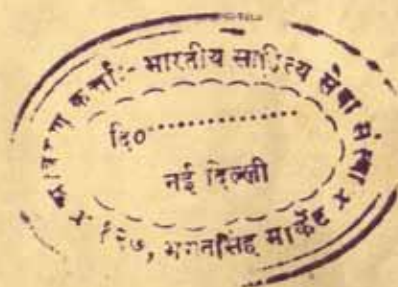 वितरण कर्त्ता:- भारतीय साहित्य सेवा संस्था ×
दि०..................
नई दिल्ली
× १२७, भगतसिंह मार्केट ×